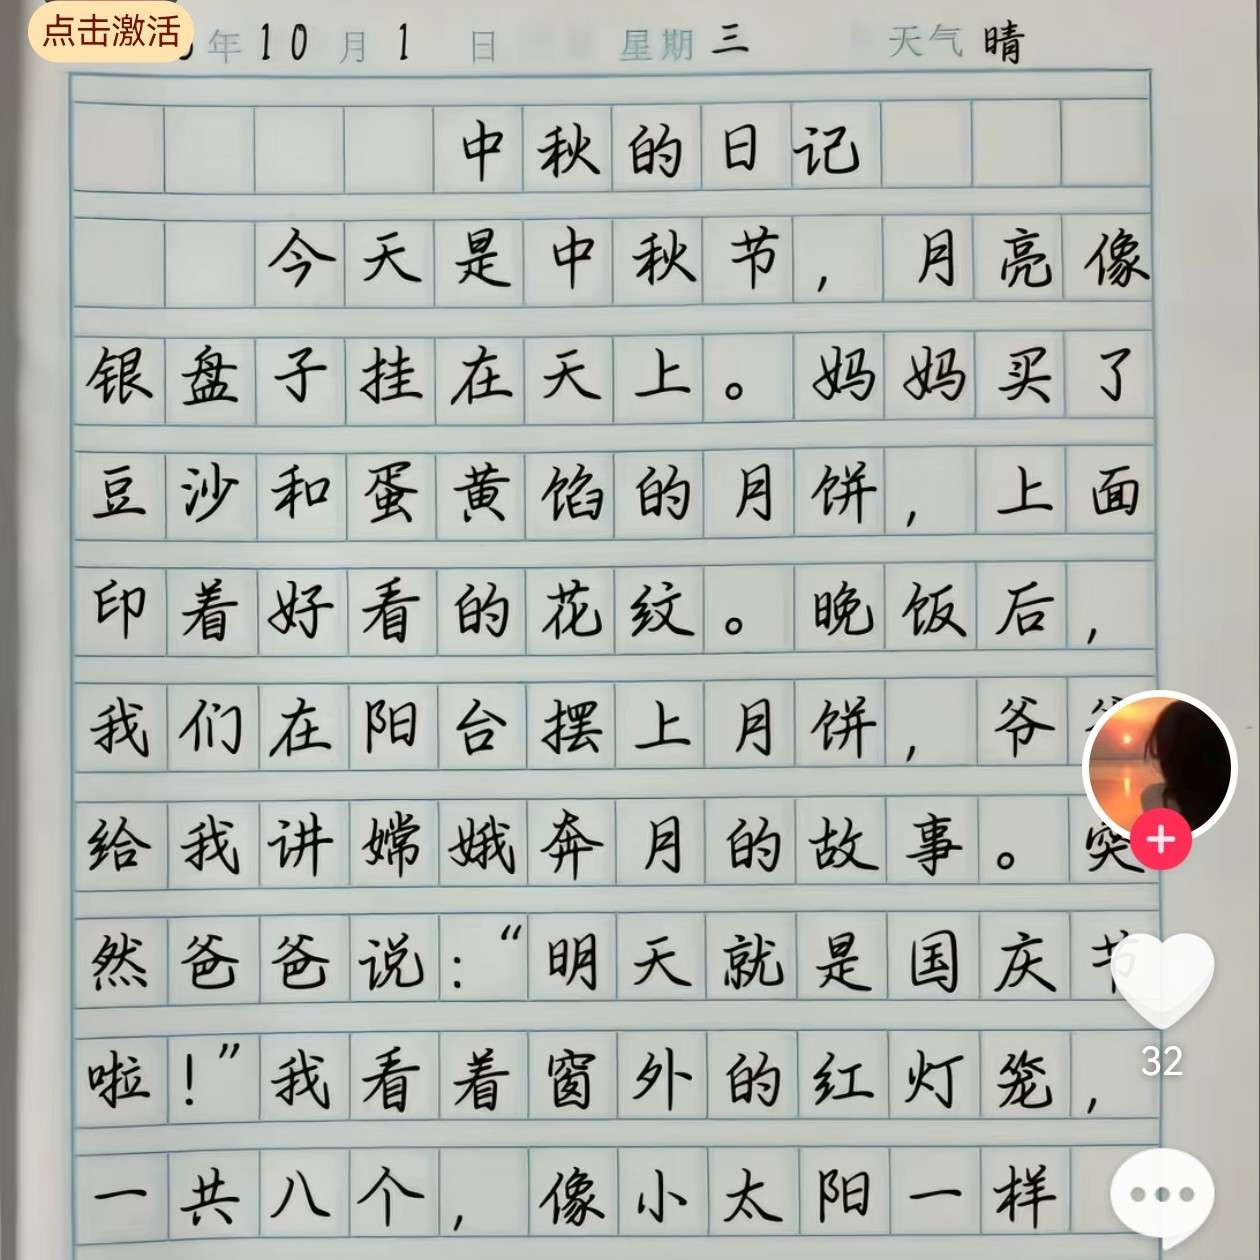 点击激活
年 10 月 1 日 星期 三 天气 晴
中秋的日记
今天是中秋节，月亮像
银盘子挂在天上。妈妈买了
豆沙和蛋黄馅的月饼，上面
印着好看的花纹。晚饭后，
我们在阳台摆上月饼，爷
给我讲嫦娥奔月的故事。突
然爸爸说：“明天就是国庆节
啦！”我看着窗外的红灯笼，
一共八个，像小太阳一样
32